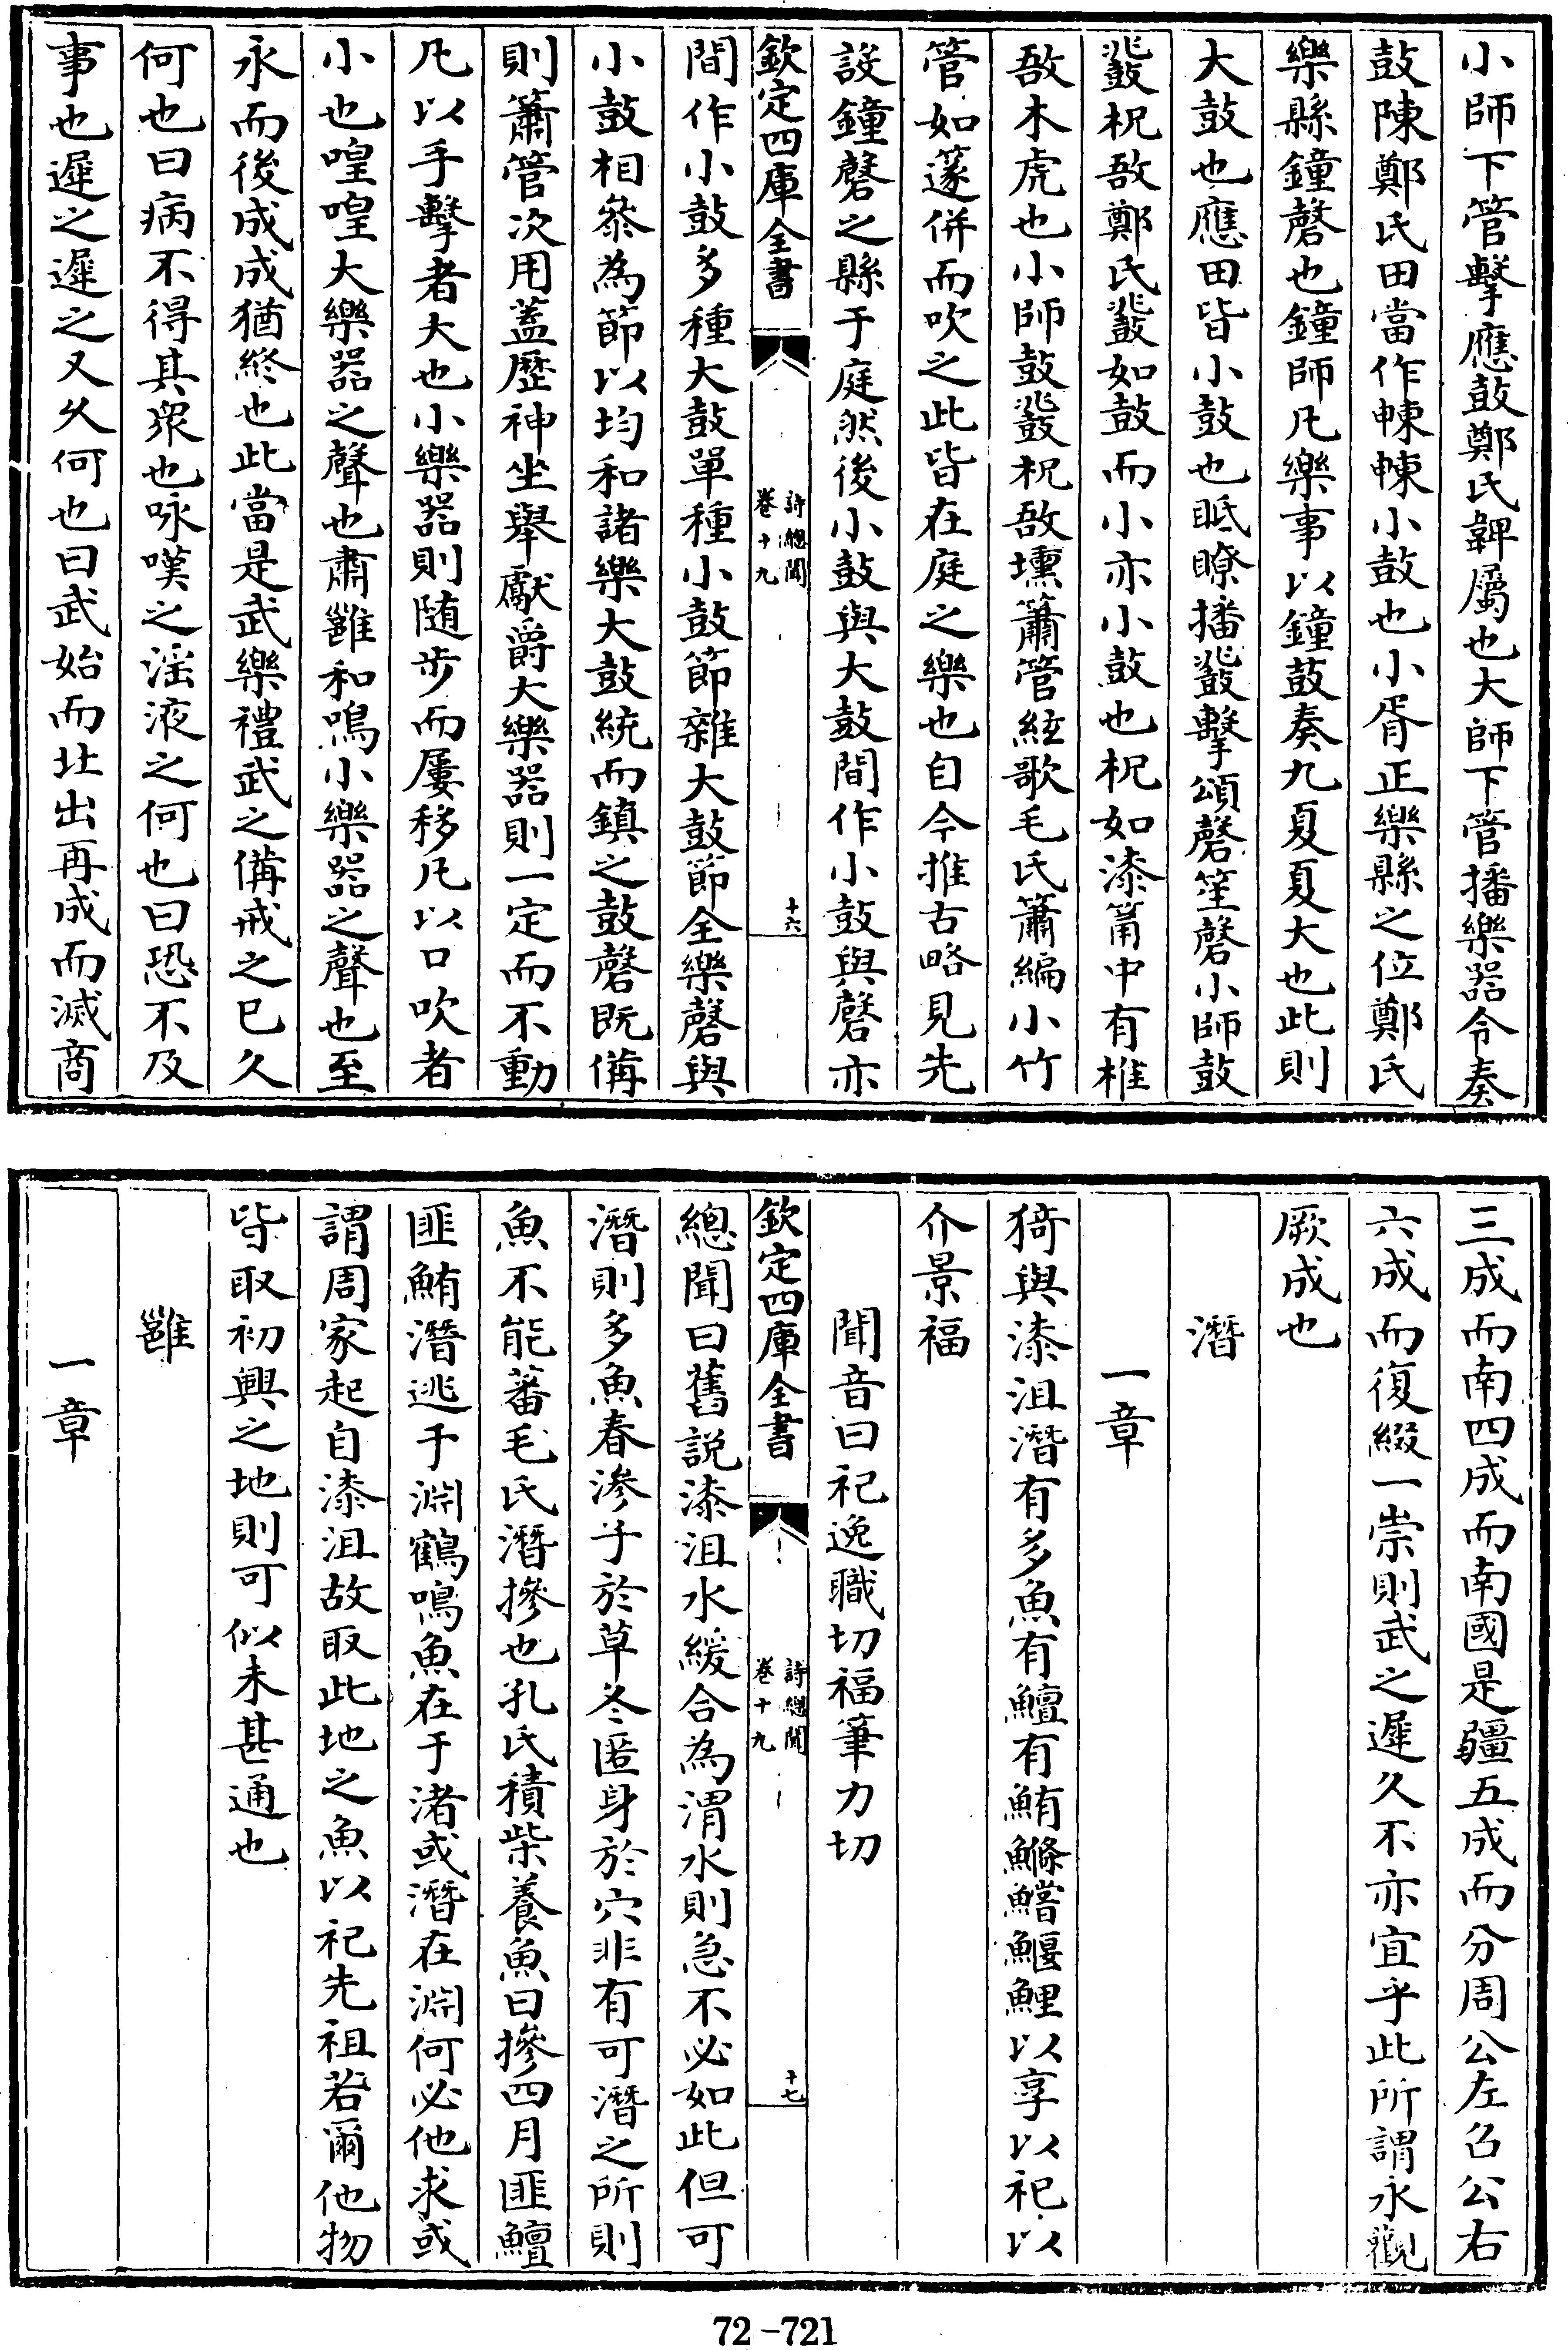 小師下管擊應鼓鄭氏鞞屬也大師下管播樂器令奏
鼓陳鄭氏田當作㯥㯥小鼓也小胥正樂縣之位鄭氏
樂縣鐘磬也鐘師凡樂事以鐘鼓奏九夏夏大也此則
大鼓也應田皆小鼓也眡瞭播鼗擊頌磬笙磬小師鼓
鼗柷敔鄭氏鼗如鼓而小亦小鼓也柷如漆筩中有椎
敔木虎也小師鼓鼗柷敔壎簫管絃歌毛氏簫編小竹
管如篴併而吹之此皆在庭之樂也自今推古略見先
設鐘磬之縣于庭然後小鼓與大鼓間作小鼓與磬亦
欽定四庫全書
詩總聞
卷十九
十六
間作小鼓多種大鼓單種小鼓節雜大鼓節全樂磬與
小鼓相參為節以均和諸樂大鼓統而鎮之鼓磬既備
則簫管次用蓋歷神坐舉獻爵大樂器則一定而不動
凡以手擊者大也小樂器則随步而屢移凡以口吹者
小也喤喤大樂器之聲也肅雝和鳴小樂器之聲也至
永而後成成猶終也此當是武樂禮武之備戒之已久
何也曰病不得其衆也咏嘆之淫液之何也曰恐不及
事也遲之遲之又久何也曰武始而北出再成而滅商
三成而南四成而南國是疆五成而分周公左召公右
六成而復綴一崇則武之遲久不亦宜乎此所謂永觀
厥成也
潛
一章
猗與漆沮潛有多魚有鱣有鮪鰷鱨鰋鯉以享以祀以
介景福
聞音曰祀逸職切福筆力切
欽定四庫全書
詩總聞
卷十九
十七
總聞曰舊説漆沮水緩合為渭水則急不必如此但可
潛則多魚春滲子於草冬匿身於穴非有可潛之所則
魚不能蕃毛氏潛摻也孔氏積柴養魚曰摻四月匪鱣
匪鮪潛逃于淵鶴鳴魚在于渚或潛在淵何必他求或
謂周家起自漆沮故取此地之魚以祀先祖若爾他物
皆取初興之地則可似未甚通也
雝
一章
72-721